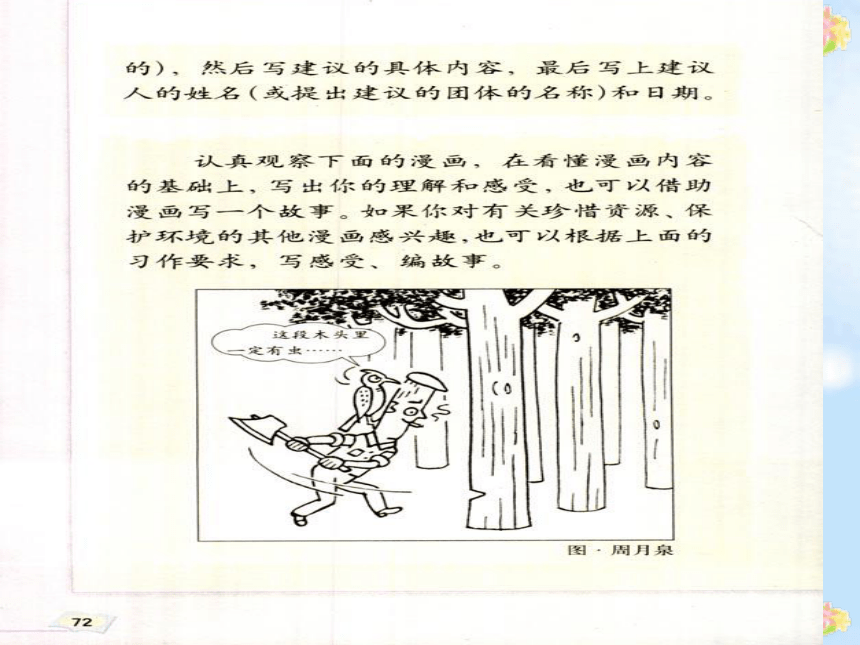 的)，然后写建议的具体内容，最后写上建议
人的姓名(或提出建议的团体的名称)和日期。
认真观察下面的漫画，在看懂漫画内容
的基础上，写出你的理解和感受，也可以借助
漫画写一个故事。如果你对有关珍惜资源、保
护环境的其他漫画感兴趣，也可以根据上面的
习作要求，写感受、编故事。
这段木头里
一定有虫……
图·周月泉
72